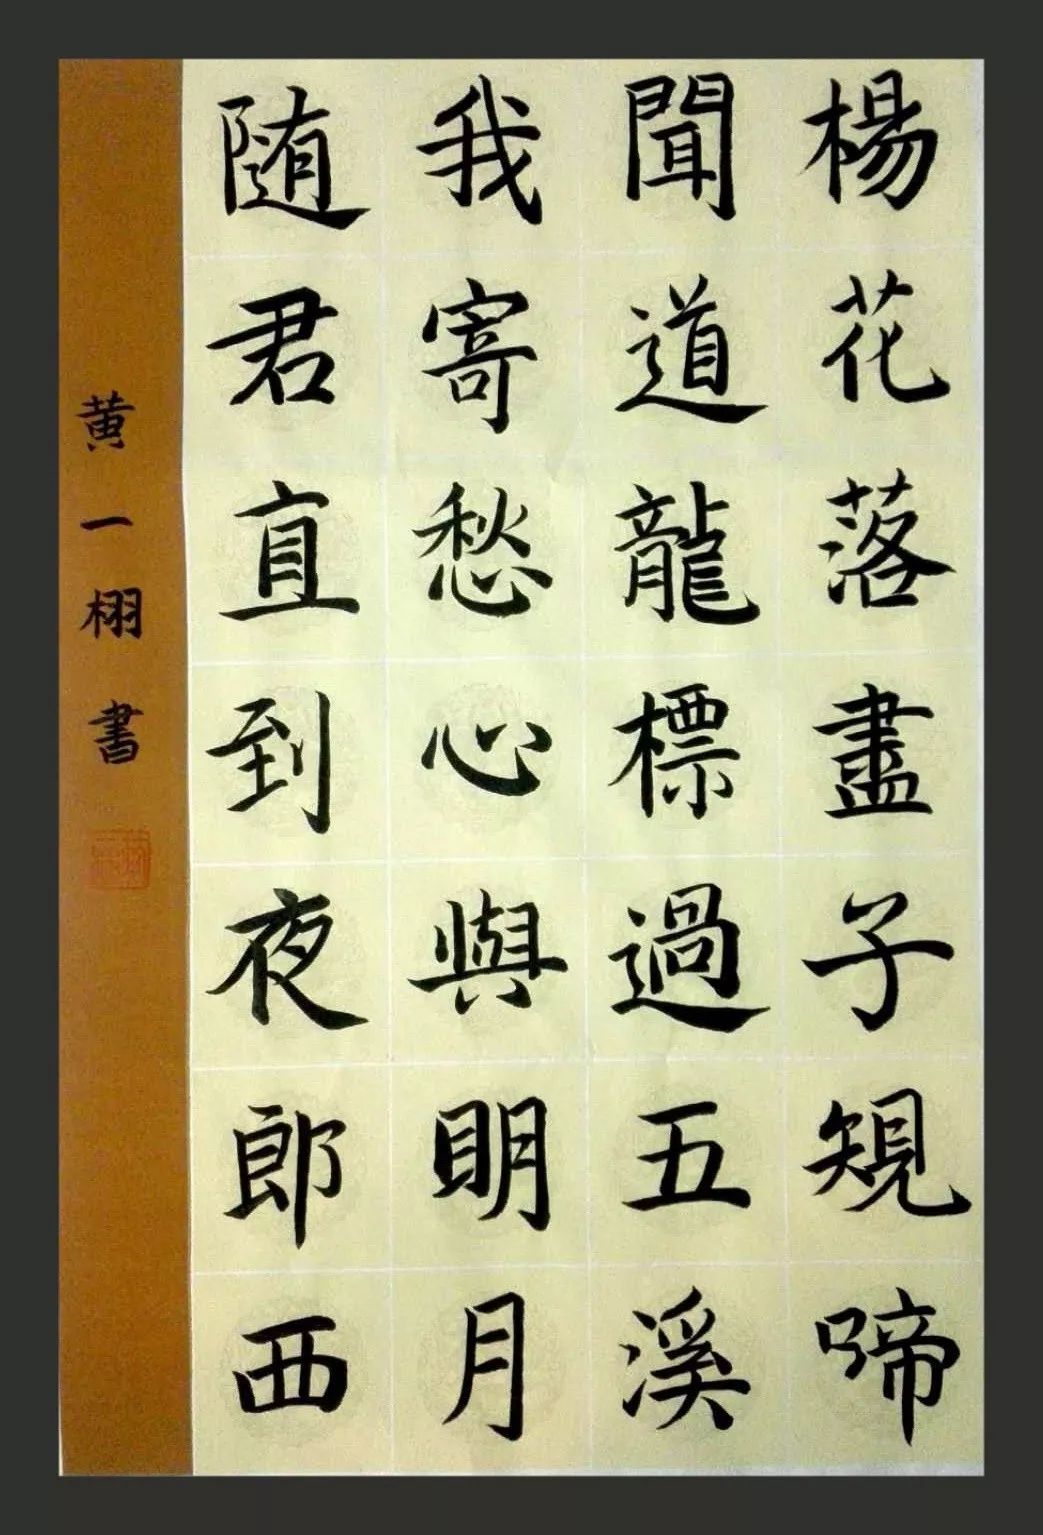 楊花落盡子規啼
聞道龍標過五溪
我寄愁心與明月
随君直到夜郎西
黄一栩書